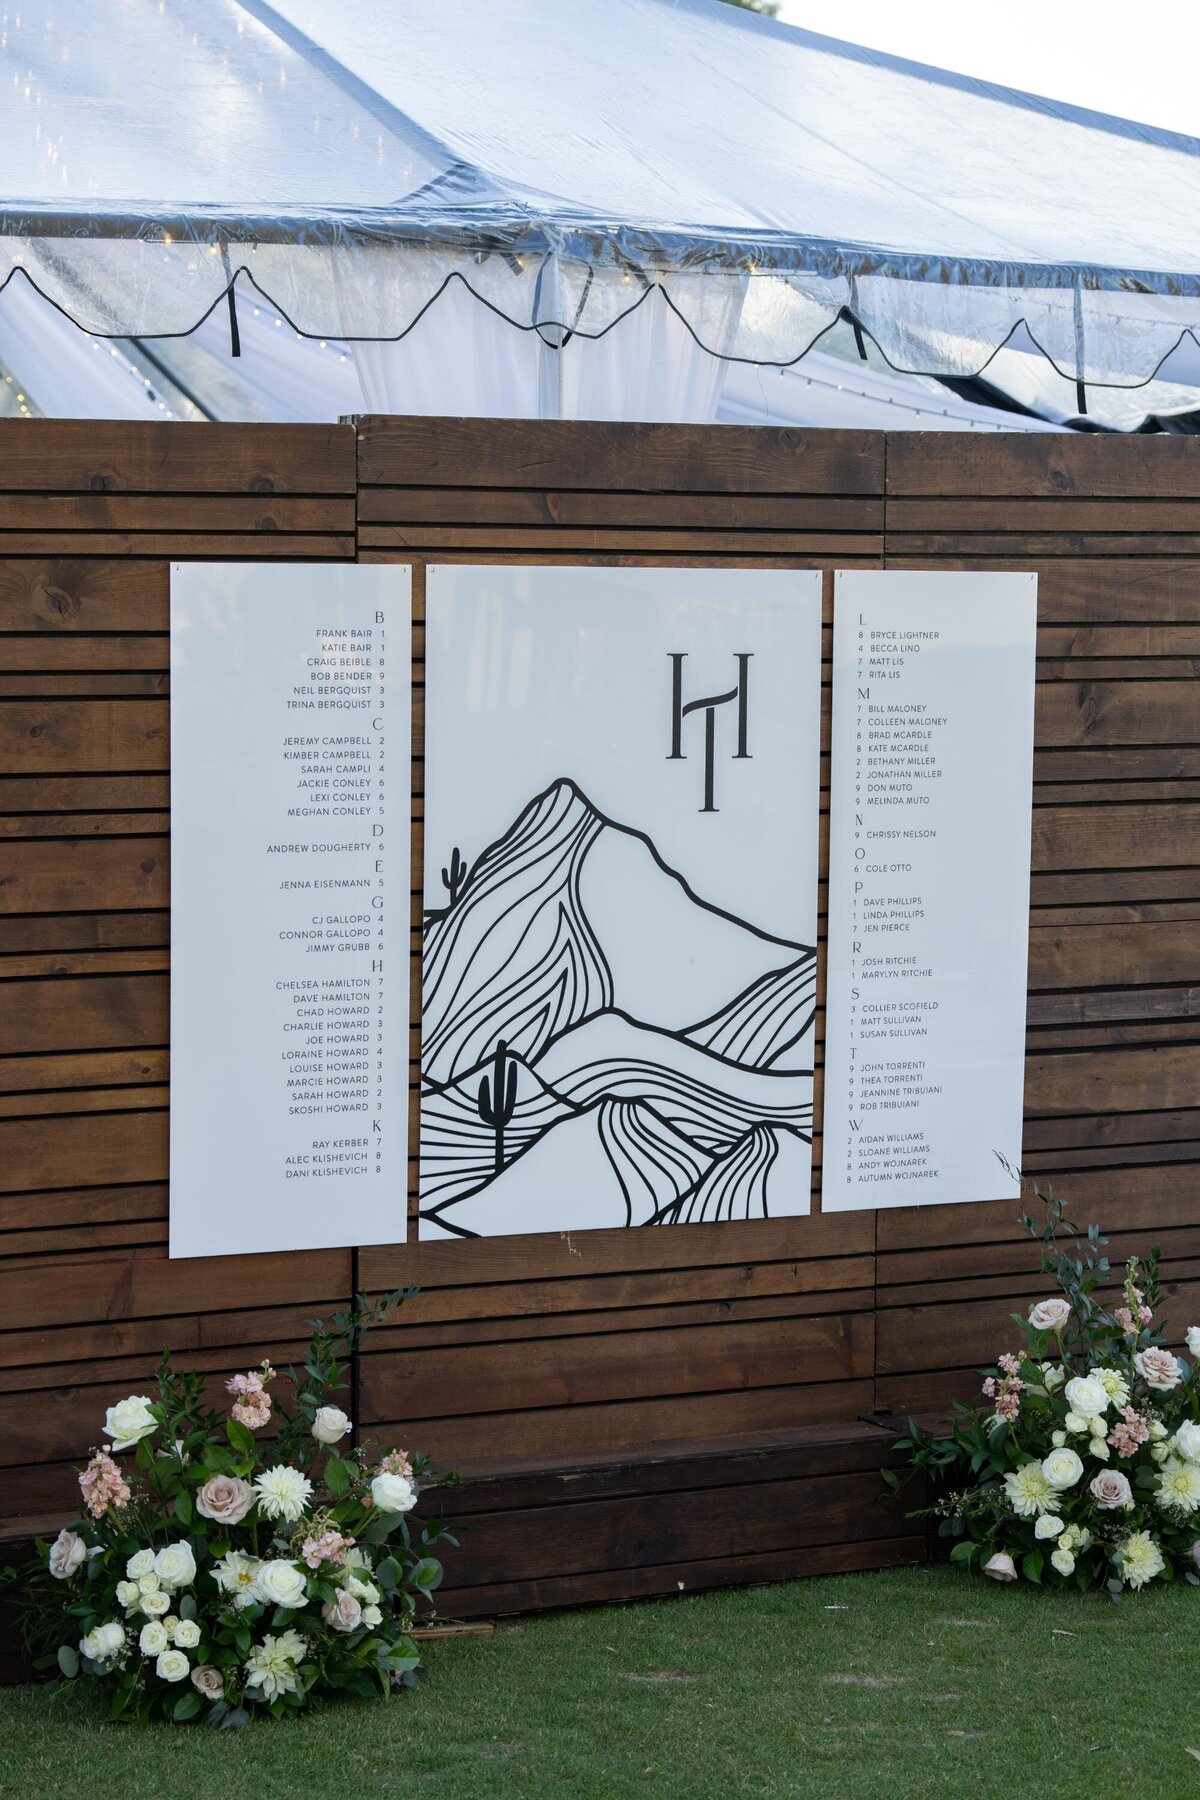 B
FRANK BAIR 1
KATIE BAIR 1
CRAIG BEIBLE 8
BOB BENDER 9
NEIL BERGQUIST 3
TRINA BERGQUIST 3
C
JEREMY CAMPBELL 2
KIMBER CAMPBELL 2
SARAH CAMPLI 4
JACKIE CONLEY 6
LEXI CONLEY 6
MEGHAN CONLEY 5
D
ANDREW DOUGHERTY 6
E
JENNA EISENMANN 5
G
CJ GALLOPO 4
CONNOR GALLOPO 4
JIMMY GRUBB 6
H
CHELSEA HAMILTON 7
DAVE HAMILTON 7
CHAD HOWARD 2
CHARLIE HOWARD 3
JOE HOWARD 3
LORAINE HOWARD 4
LOUISE HOWARD 3
MARCIE HOWARD 3
SARAH HOWARD 2
SKOSHI HOWARD 3
K
RAY KERBER 7
ALEC KLISHEVICH 8
DANI KLISHEVICH 8
HT
L
8 BRYCE LIGHTNER
4 BECCA LINO
7 MATT LIS
7 RITA LIS
M
7 BILL MALONEY
7 COLLEEN MALONEY
8 BRAD MCARDLE
8 KATE MCARDLE
2 BETHANY MILLER
2 JONATHAN MILLER
9 DON MUTO
9 MELINDA MUTO
N
9 CHRISSY NELSON
O
6 COLE OTTO
P
1 DAVE PHILLIPS
1 LINDA PHILLIPS
7 JEN PIERCE
R
1 JOSH RITCHIE
1 MARYLYN RITCHIE
S
3 COLLIER SCOFIELD
1 MATT SULLIVAN
1 SUSAN SULLIVAN
T
9 JOHN TORRENTI
9 THEA TORRENTI
9 JEANNINE TRIBUIANI
9 ROB TRIBUIANI
W
2 AIDAN WILLIAMS
2 SLOANE WILLIAMS
8 ANDY WOJNAREK
8 AUTUMN WOJNAREK